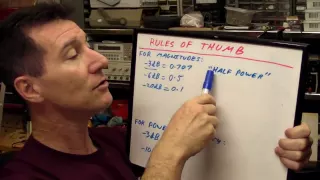 RULES OF THUMB
FOR MAGNITUDES:
-3dB = 0.707 "HALF POWER"
-6dB = 0.5
-20dB = 0.1
FOR POW
-3dB
-10